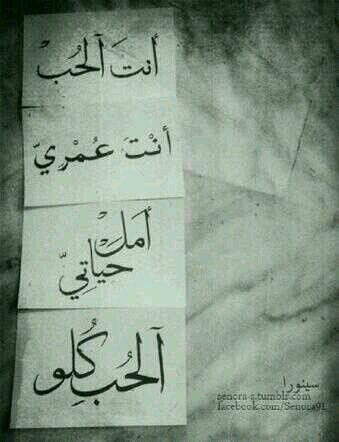 أنتَ آلحُب
أنْتَ عُمْرِيّ
أملْ
حياتِيّ
آلحُب كُلو
سينورا
senora-s.tumblr.com
facebook.com/Senora91